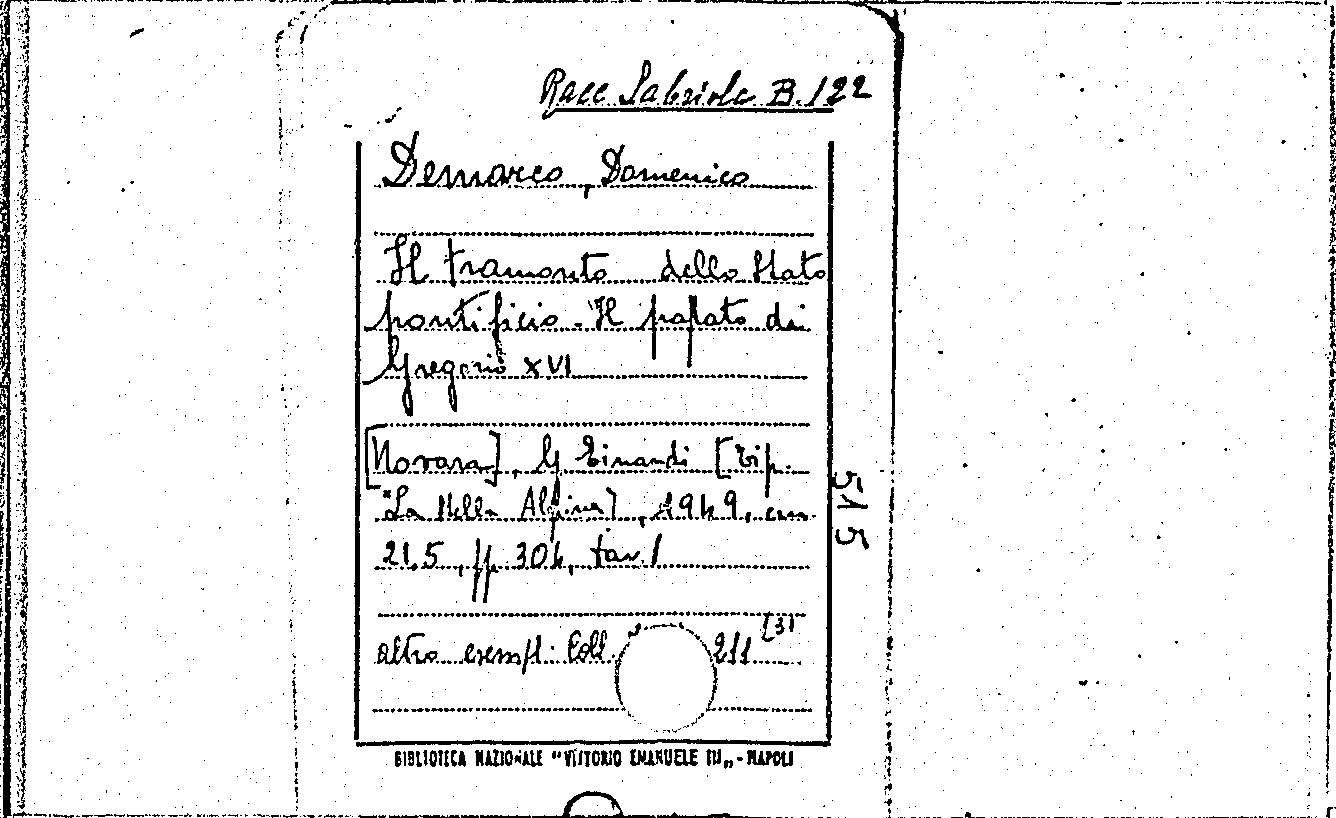 Racc Labriola B.122
Demarco, Domenico
Il tramonto dello Stato
pontificio. Il papato di
Gregorio XVI
[Novara], G Einaudi [Tip.
"La Stella Alpina], 1949, cm
21.5, pp 304, tav. 1
altro exempl: Coll. 211 (3)
515
BIBLIOTECA NAZIONALE "VITTORIO EMANUELE III„ - NAPOLI